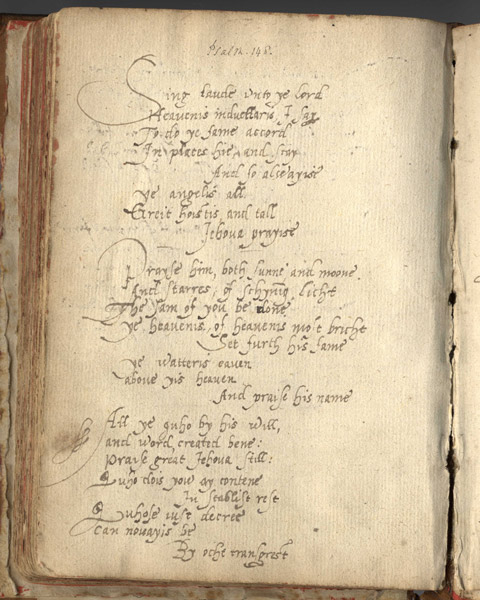 Psalm. 148.
Sing laude vnto ye lord
Heavenis induellaris, I say
To do ye same accord
In places hie, and stay
And so alse ayise
ye angelis all
Greit hoistis and tall
Jehova prayise
Praise him, both sunne and moone
And starres, of schyning licht
The sam of you be done
ye heavenis, of heavenis most bricht
Set furth his fame
ye watteris
above yis heaven
And praise his name
All ye quho by his will,
and word created bene:
Praise great Jehova still:
Quho dois yow ay contene
In stablist rest
Quhose iust decree
Can nowayis be
By oche transgrest